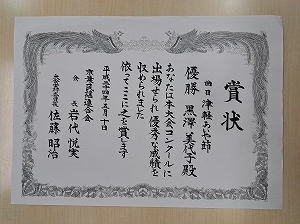 賞状
曲目 津軽あいや節
優勝 黒澤美代子殿
あなたは本大会コンクールに
出場せられ優秀な成績を
収められました
依ってここに之を賞します
平成二十四年三月十日
会長 岩代悦実
佐藤昭治